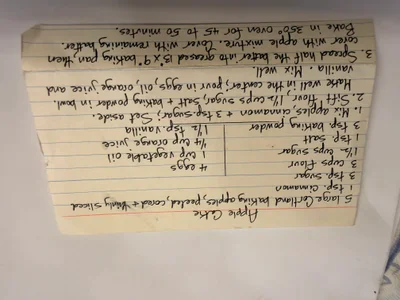 Apple Cake
5 large Cortland baking apples, peeled, cored + thinly sliced
1 tsp. cinnamon
3 tsp. sugar
3 cups flour
1½ cups sugar
1 tsp. salt
3 tsp baking powder
4 eggs
1 cup vegetable oil
¼ cup orange juice
1½ tsp. vanilla
1. Mix apples, cinnamon + 3 tsp. sugar. Set aside.
2. Sift flour, 1½ cups sugar, salt + baking powder in bowl.
Make well in the center; pour in eggs, oil, orange juice and
vanilla. Mix well.
3. Spread half the batter into greased 13 x 9" baking pan then
cover with apple mixture. Cover with remaining batter.
Bake in 350° oven for 45 to 50 minutes.